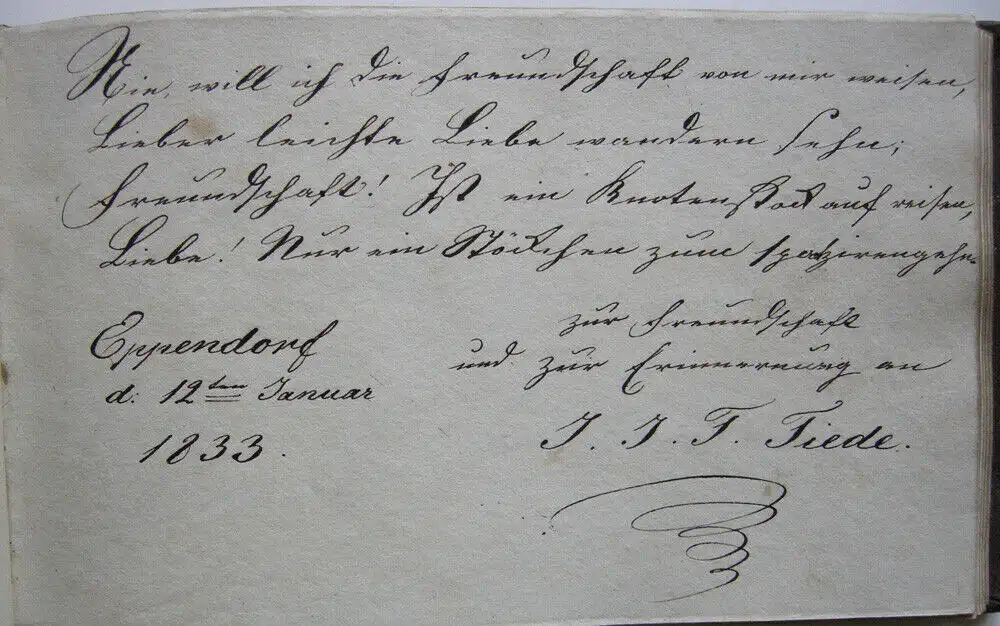 Nie, will ich die Freundschaft von mir weisen,
Lieber leichte Liebe wandern sehn;
Freundschaft! Ist ein Knotenstock auf reisen,
Liebe! Nur ein Stöckchen zum spatzirengehn
zur Freundschaft
und zur Erinnerung an
Eppendorf
d: 12ten Januar
1833.
J. J. F. Tiede.